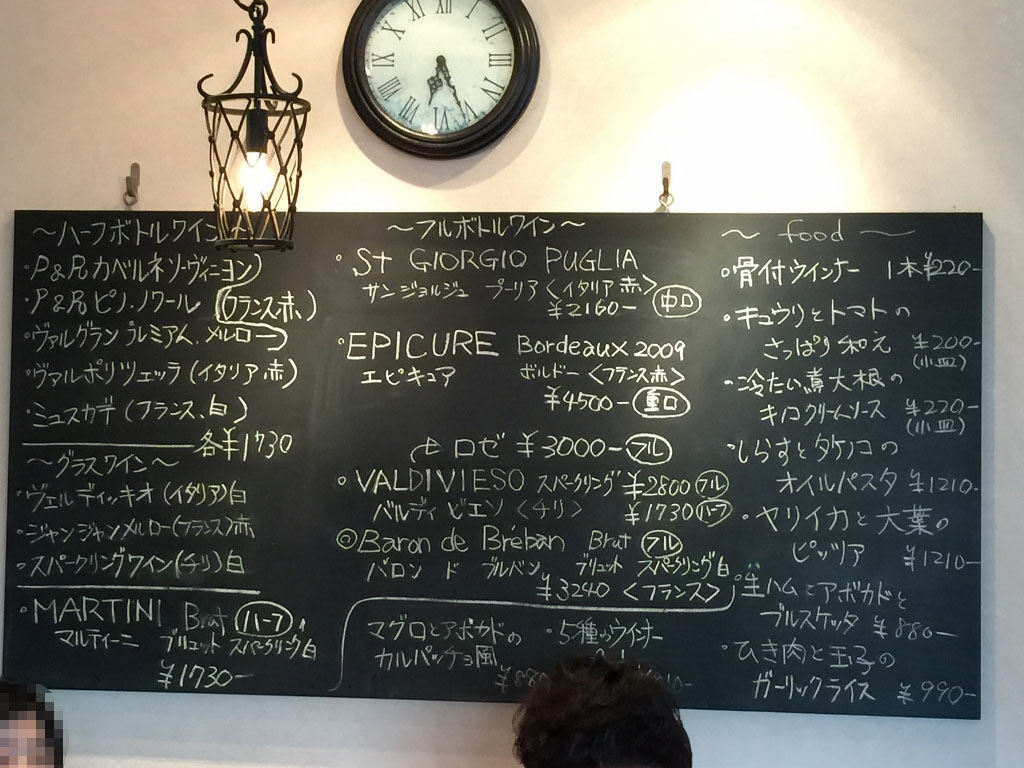 XII
〜ハーフボトルワイン〜
・P&P.カベルネソーヴィニヨン)
・P&P.ピノ.ノワール (フランス.赤)
・ヴァルグラン プレミアム.メルロー
・ヴァルポリツェッラ (イタリア.赤)
・ミュスカデ (フランス.白)
各¥1730
〜グラスワイン〜
・ヴェルディッキオ (イタリア)白
・ジャンジャンメルロー(フランス)赤
・スパークリングワイン(チリ)白
・MARTINI Brut (ハーフ)
マルティーニ ブリュット スパークリング白
¥1730-
〜フルボトルワイン〜
・St GIORGIO PUGLIA
サンジョルジュ プーリア <イタリア赤>
¥2160- 中口
・EPICURE Bordeaux 2009
エピキュア ボルドー <フランス赤>
¥4500- 重口
ロゼ ¥3000- フル
・VALDIVIESO スパークリング ¥2800 フル
バルディビエソ <チリ> ¥1730 ハーフ
◎Baron de Bréban Brut フル
バロン ド ブルバン ブリュット スパークリング白
¥3240 <フランス>
マグロとアボカドの
カルパッチョ風
・5種のウインナー
〜 food 〜
・骨付ウインナー 1本¥220-
・キュウリとトマトの
さっぱり和え ¥200-
(小皿)
・冷たい煮大根の
キノコクリームソース ¥220-
(小皿)
・しらすとタケノコの
オイルパスタ ¥1210-
・ヤリイカと大葉の
ピッツァ ¥1210-
・生ハムとアボカドと
ブルスケッタ ¥880-
・ひき肉と玉子の
ガーリックライス ¥990-